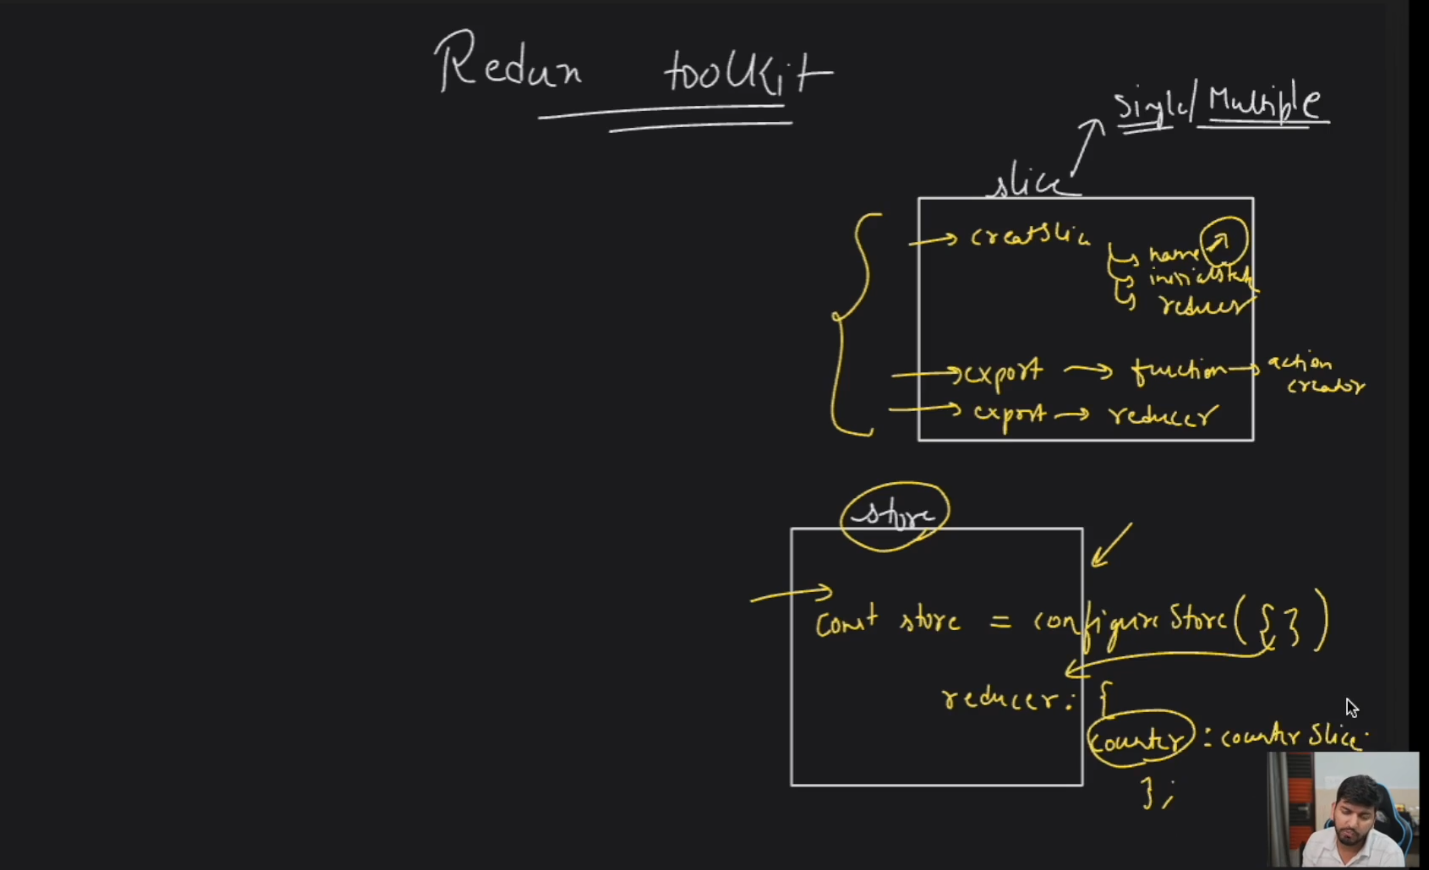 Redux toolkit
Single/Multiple
slice
creatSlic
name
initialState
reducer
export → function → action creator
export → reducer
store
const store = configureStore({})
reducer: {
counter : counterSlice
};